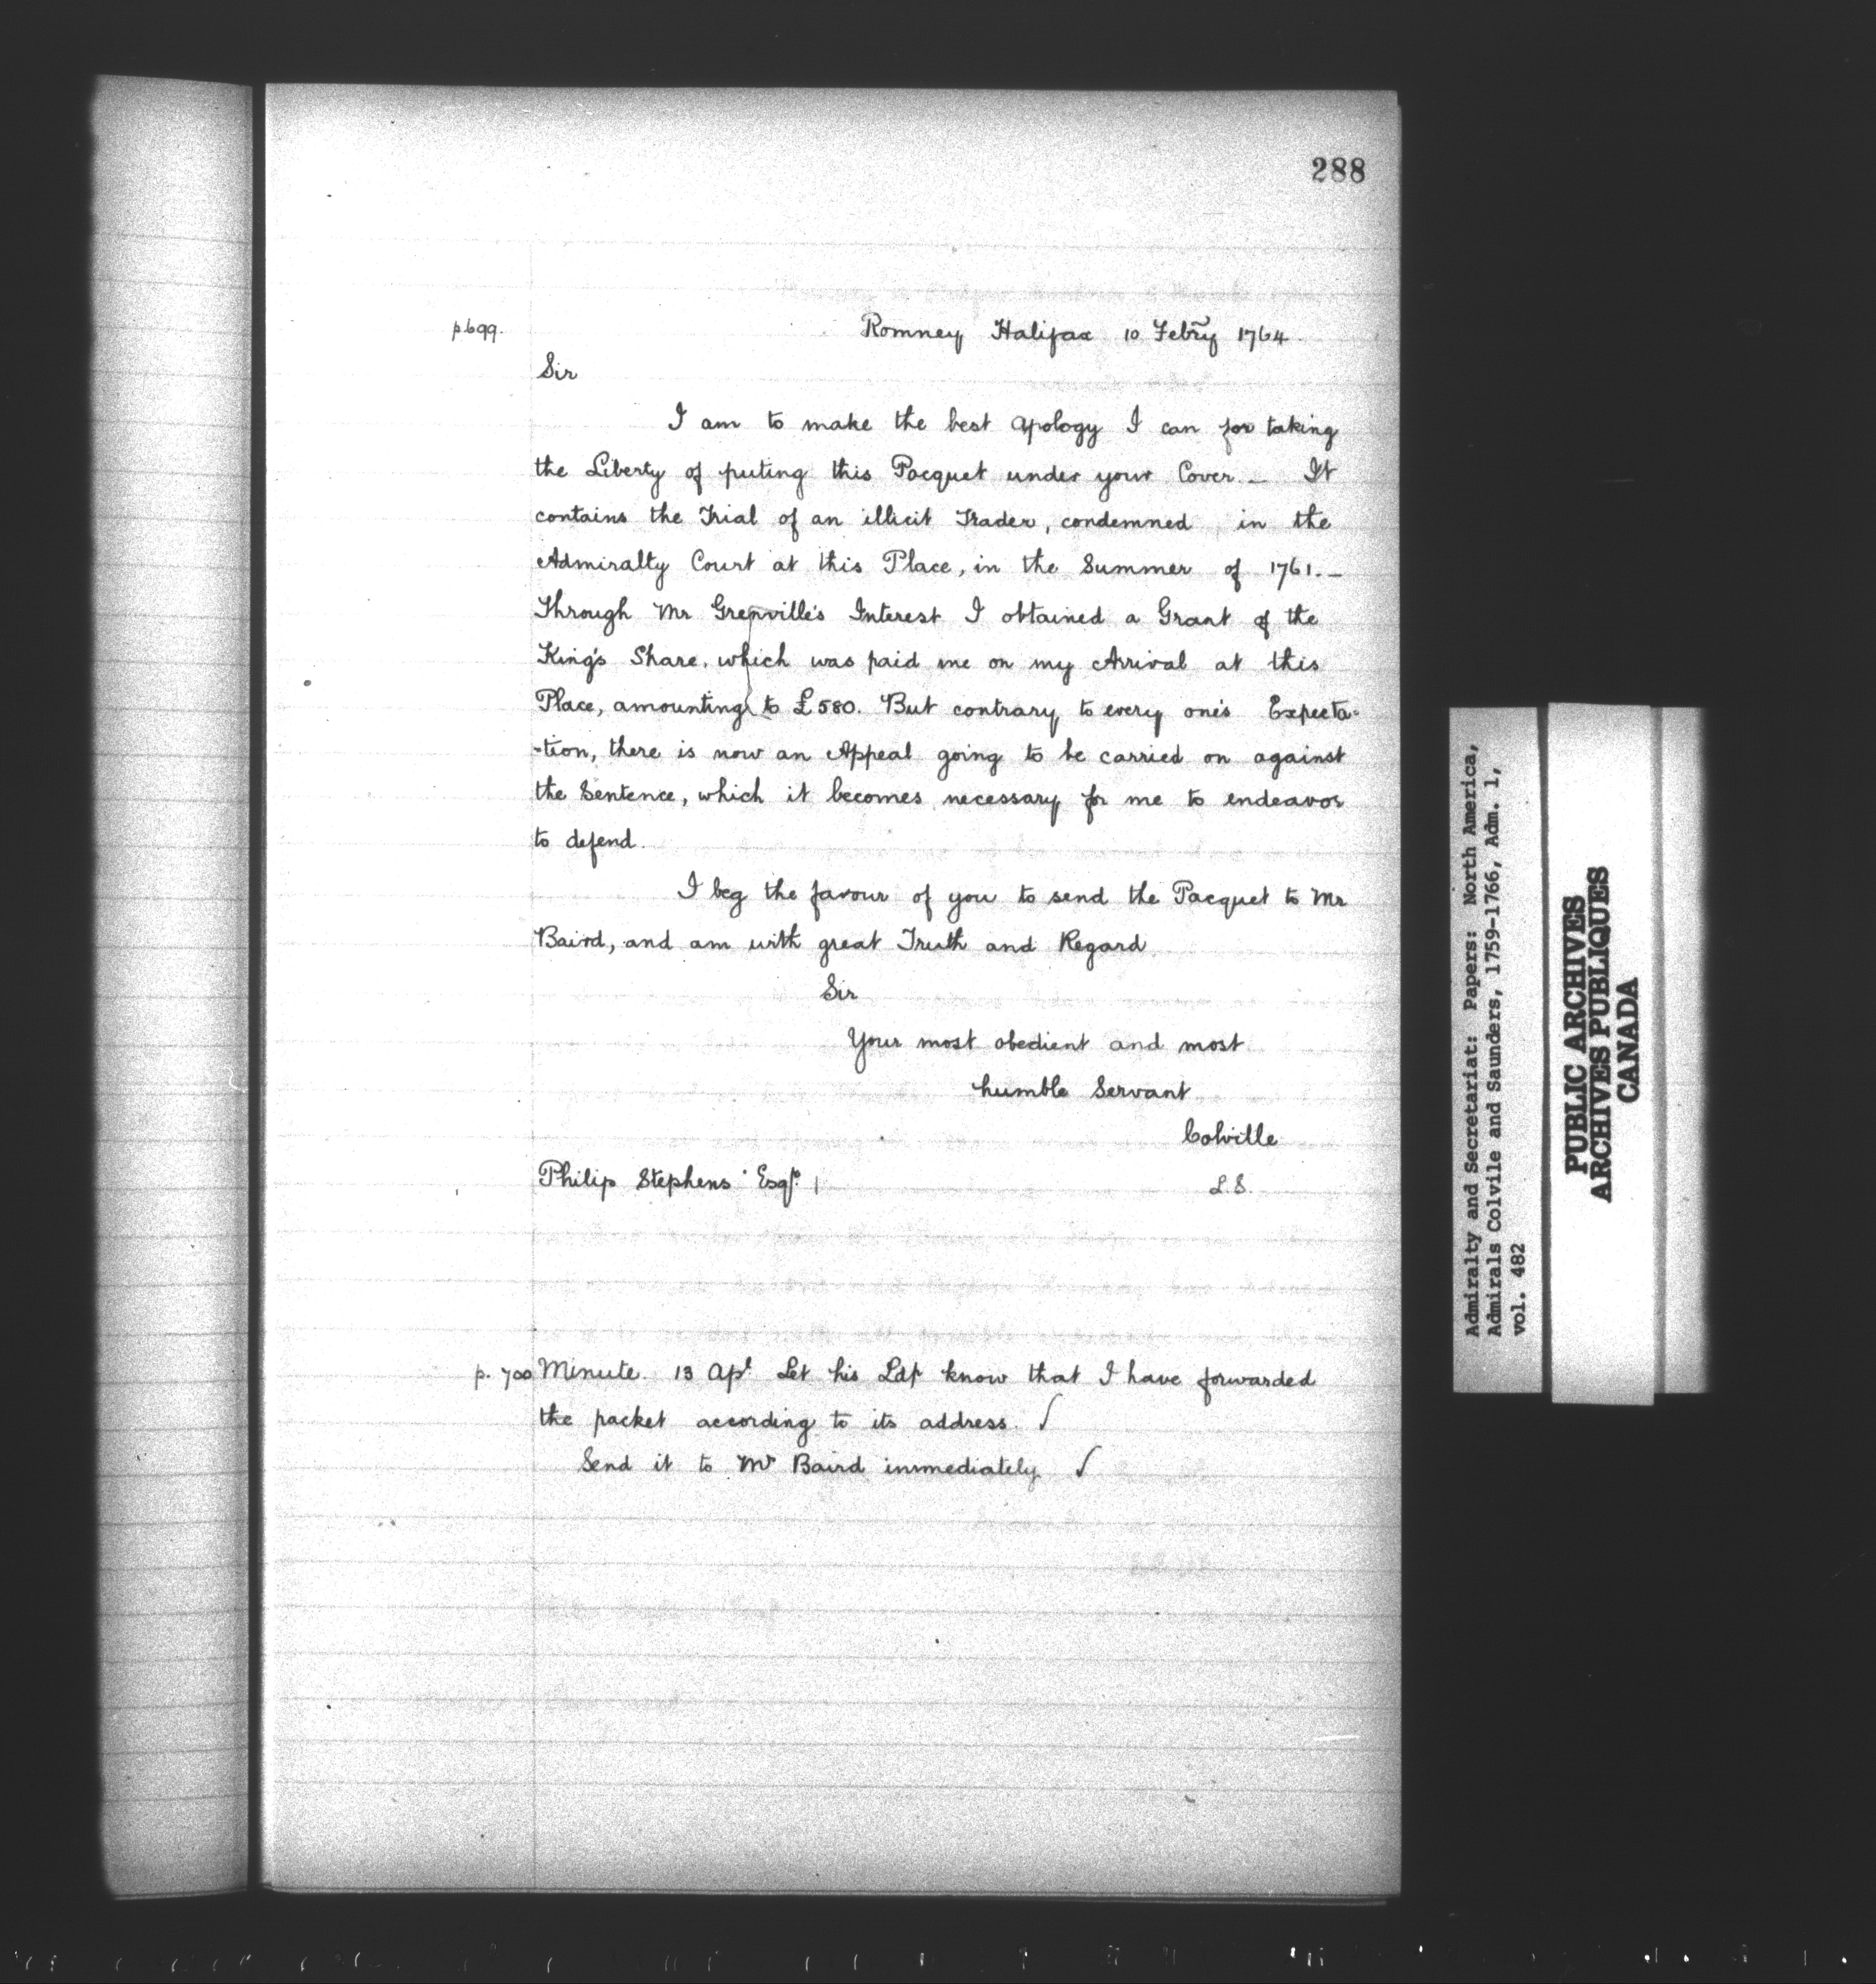 288
p.699.
Romney Halifax 10 Febry 1764.
Sir
I am to make the best apology I can for taking
the Liberty of puting this Pacquet under your Cover. _ It
contains the Trial of an illicit Trader, condemned in the
Admiralty Court at this Place, in the Summer of 1761. _
Through Mr Grenville's Interest I obtained a Grant of the
King's Share, which was paid me on my Arrival at this
Place, amounting to £580. But contrary to every one's Expecta-
-tion, there is now an Appeal going to be carried on against
the Sentence, which it becomes necessary for me to endeavor
to defend.
I beg the favour of you to send the Pacquet to Mr
Baird, and am with great Truth and Regard
Sir
Your most obedient and most
humble Servant
Colville
Philip Stephens Esqr.
L.S.
p. 700 Minute. 13 Apl. Let his Ldp know that I have forwarded
the packet according to its address. √
Send it to Mr Baird immediately √
Admiralty and Secretariat: Papers: North America,
Admirals Colvile and Saunders, 1759-1766, Adm. 1,
vol. 482
PUBLIC ARCHIVES
ARCHIVES PUBLIQUES
CANADA